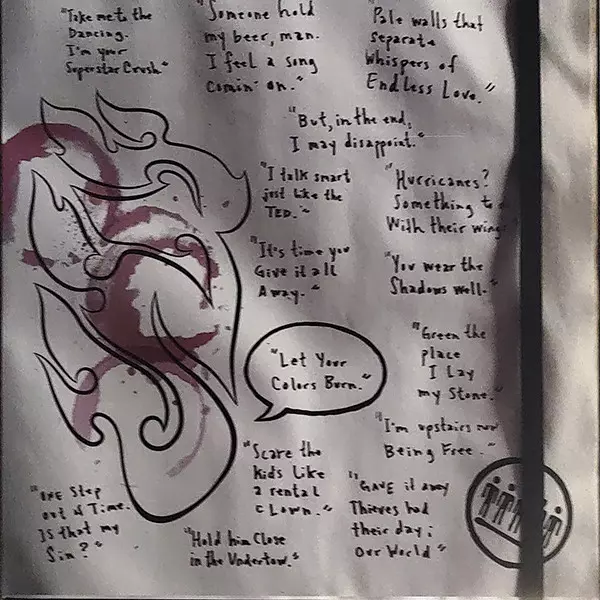 "Take me to the
Dancing.
I'm your
Superstar Crush"
"Someone hold
my beer, man.
I feel a song
comin' on."
Pale walls that
separate
Whispers of
Endless Love."
"But, in the end,
I may disappoint."
"I talk smart
just like the
TED."
"Hurricanes?
Something to
With their wing
"It's time you
Give it all
Away."
"You wear the
Shadows well."
"Let Your
Colors Burn."
"Green the
place
I Lay
my Stone."
"I'm upstairs now
Being Free."
"Scare the
kids Like
a rental
clown."
"GAVE it away
Thieves had
their day;
Our World"
"One Step
out of Time.
Is that my
Sin?"
"Hold him Close
in the Undertow."